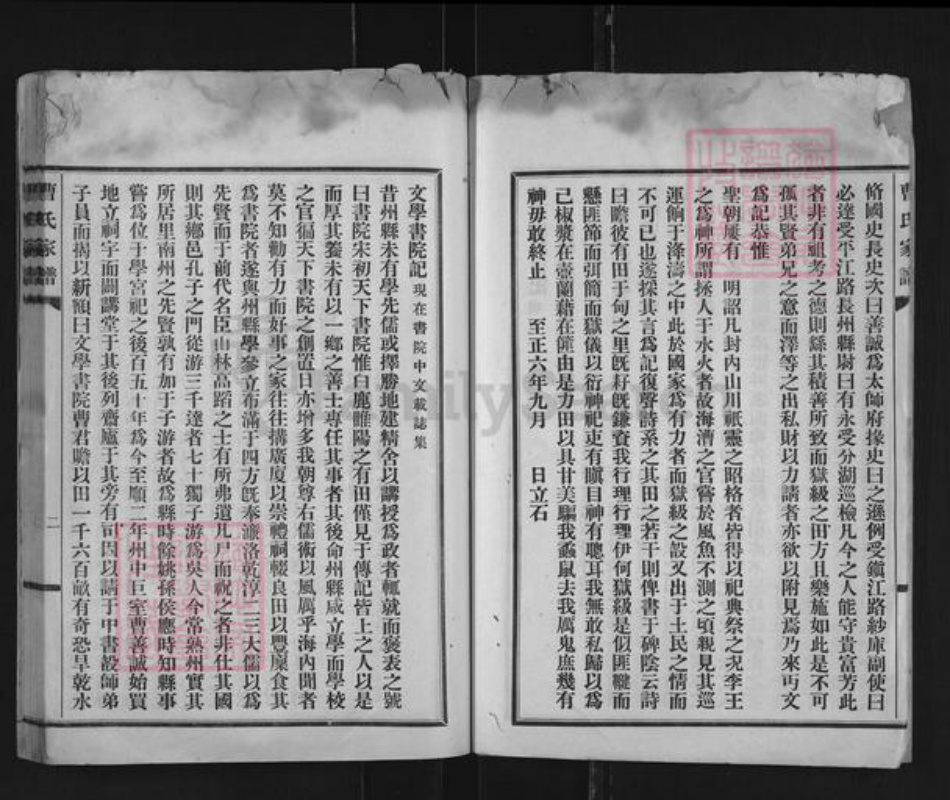 脩國史長史次曰善誠為太師府掾史曰之遜例受鎮江路紗庫副使曰
必達受平江路長州縣尉曰有永受分湖巡檢凡今之人能守貴富芳此
者非有祖考之德則繇其積善所致而獄級之田方且樂施如此是不可
孤其賢弟兄之意而澤等之出私財以力請者亦欲以附見焉乃來丐文
為記恭惟
聖朝屢有 明詔凡封內山川祇靈之昭格者皆得以祀典祭之况李王
之為神所謂拯人于水火者故海漕之官嘗於風魚不測之頃親見其巡
運餉于洚濤之中此於國家為有力者而獄級之設又出于土民之情而
不可已也遂採其言為記復聲詩系之其田之若干則俾書于碑陰云詩
曰瞻彼有田于甸之里旣秄旣鎌賚我行理行理伊何獄級是似匪轣而
懸匪節而弭簡而獄儀以衍神祀吏有瞋目神有聰耳我無敢私歸以為
己椒漿在壺蘭藉在筐由是力田以具甘美驅我螽鼠去我厲鬼庶幾有
神毋敢終止 至正六年九月 日立石
文學書院記現在書院中文載誌集
昔州縣未有學先儒或擇勝地建精舍以講授為政者輒就而褒表之號
曰書院宋初天下書院惟白鹿睢陽之有田僅見于傳記皆上之人以是
而厚其養未有以一鄉之善士專任其事者其後命州縣咸立學而學校
之官徧天下書院之創置日亦增多我朝尊右儒術以風厲乎海內聞者
莫不知勸有力而好事之家往往搆廣廈以崇禮祠輟良田以豐廩食其
為書院者遂與州縣學參立布滿于四方旣奉濂洛乾淳二三大儒以為
先賢而于前代名臣山林高蹈之士有所弗遺凡尸而祝之者非仕其國
則其鄉邑孔子之門從游三千達者七十獨子游為吳人今常熟州實其
所居里南州之先賢孰有加于子游者故為縣時餘姚孫侯應時知縣事
嘗為位于學宮祀之後百五十年為今至順二年州中巨室曹善誠始買
地立祠宇而闢講堂于其後列齋廬于其旁有司因以請于中書設師弟
子員而揭以新額曰文學書院曹君瞻以田一千六百畝有奇恐旱乾水
曹氏家譜
二